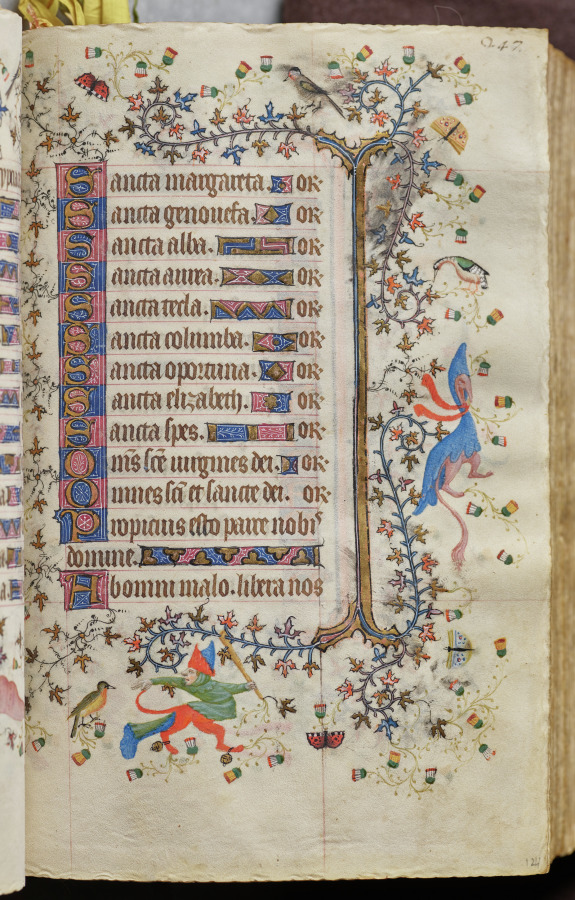 247.
Sancta margareta. or
Sancta genouefa. or
Sancta alba. or
Sancta aurea. or
Sancta tecla. or
Sancta columba. or
Sancta oportuna. or
Sancta elizabeth. or
Sancta spes. or
Om̄s sc̄e uirgines dei. or
Omnes sc̄i et sancte dei. or
Propicius esto parce nobis
domine.
Ab omni malo. libera nos